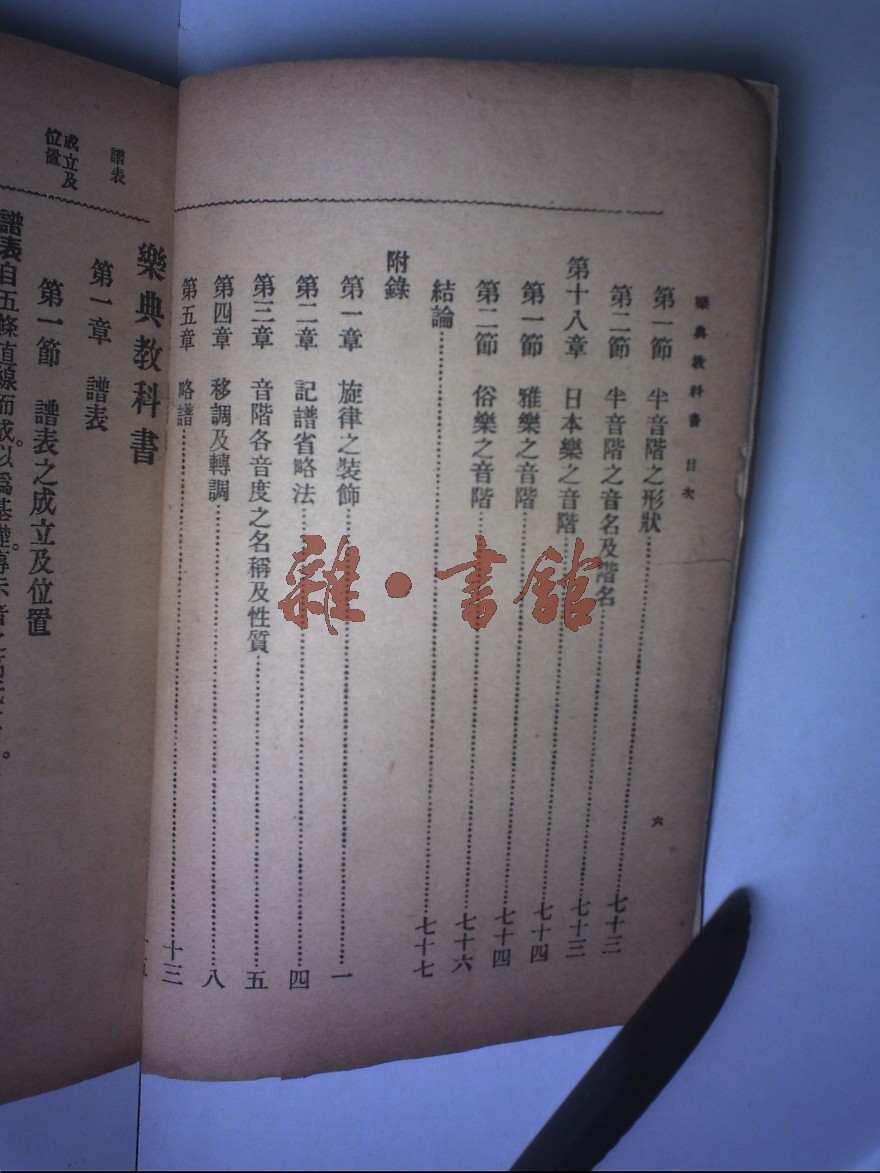 樂典教科書 目次
六
第一節 半音階之形狀……七十三
第二節 半音階之音名及階名……七十三
第十八章 日本樂之音階……七十四
第一節 雅樂之音階……七十四
第二節 俗樂之音階……七十六
結論……七十七
附錄
第一章 旋律之裝飾……一
第二章 記譜省略法……四
第三章 音階各音度之名稱及性質……五
第四章 移調及轉調……八
第五章 略譜……十三
雜·書館
譜表
成立及
位置
樂典教科書
第一章 譜表
第一節 譜表之成立及位置
譜表自五條直線而成。以爲基礎。